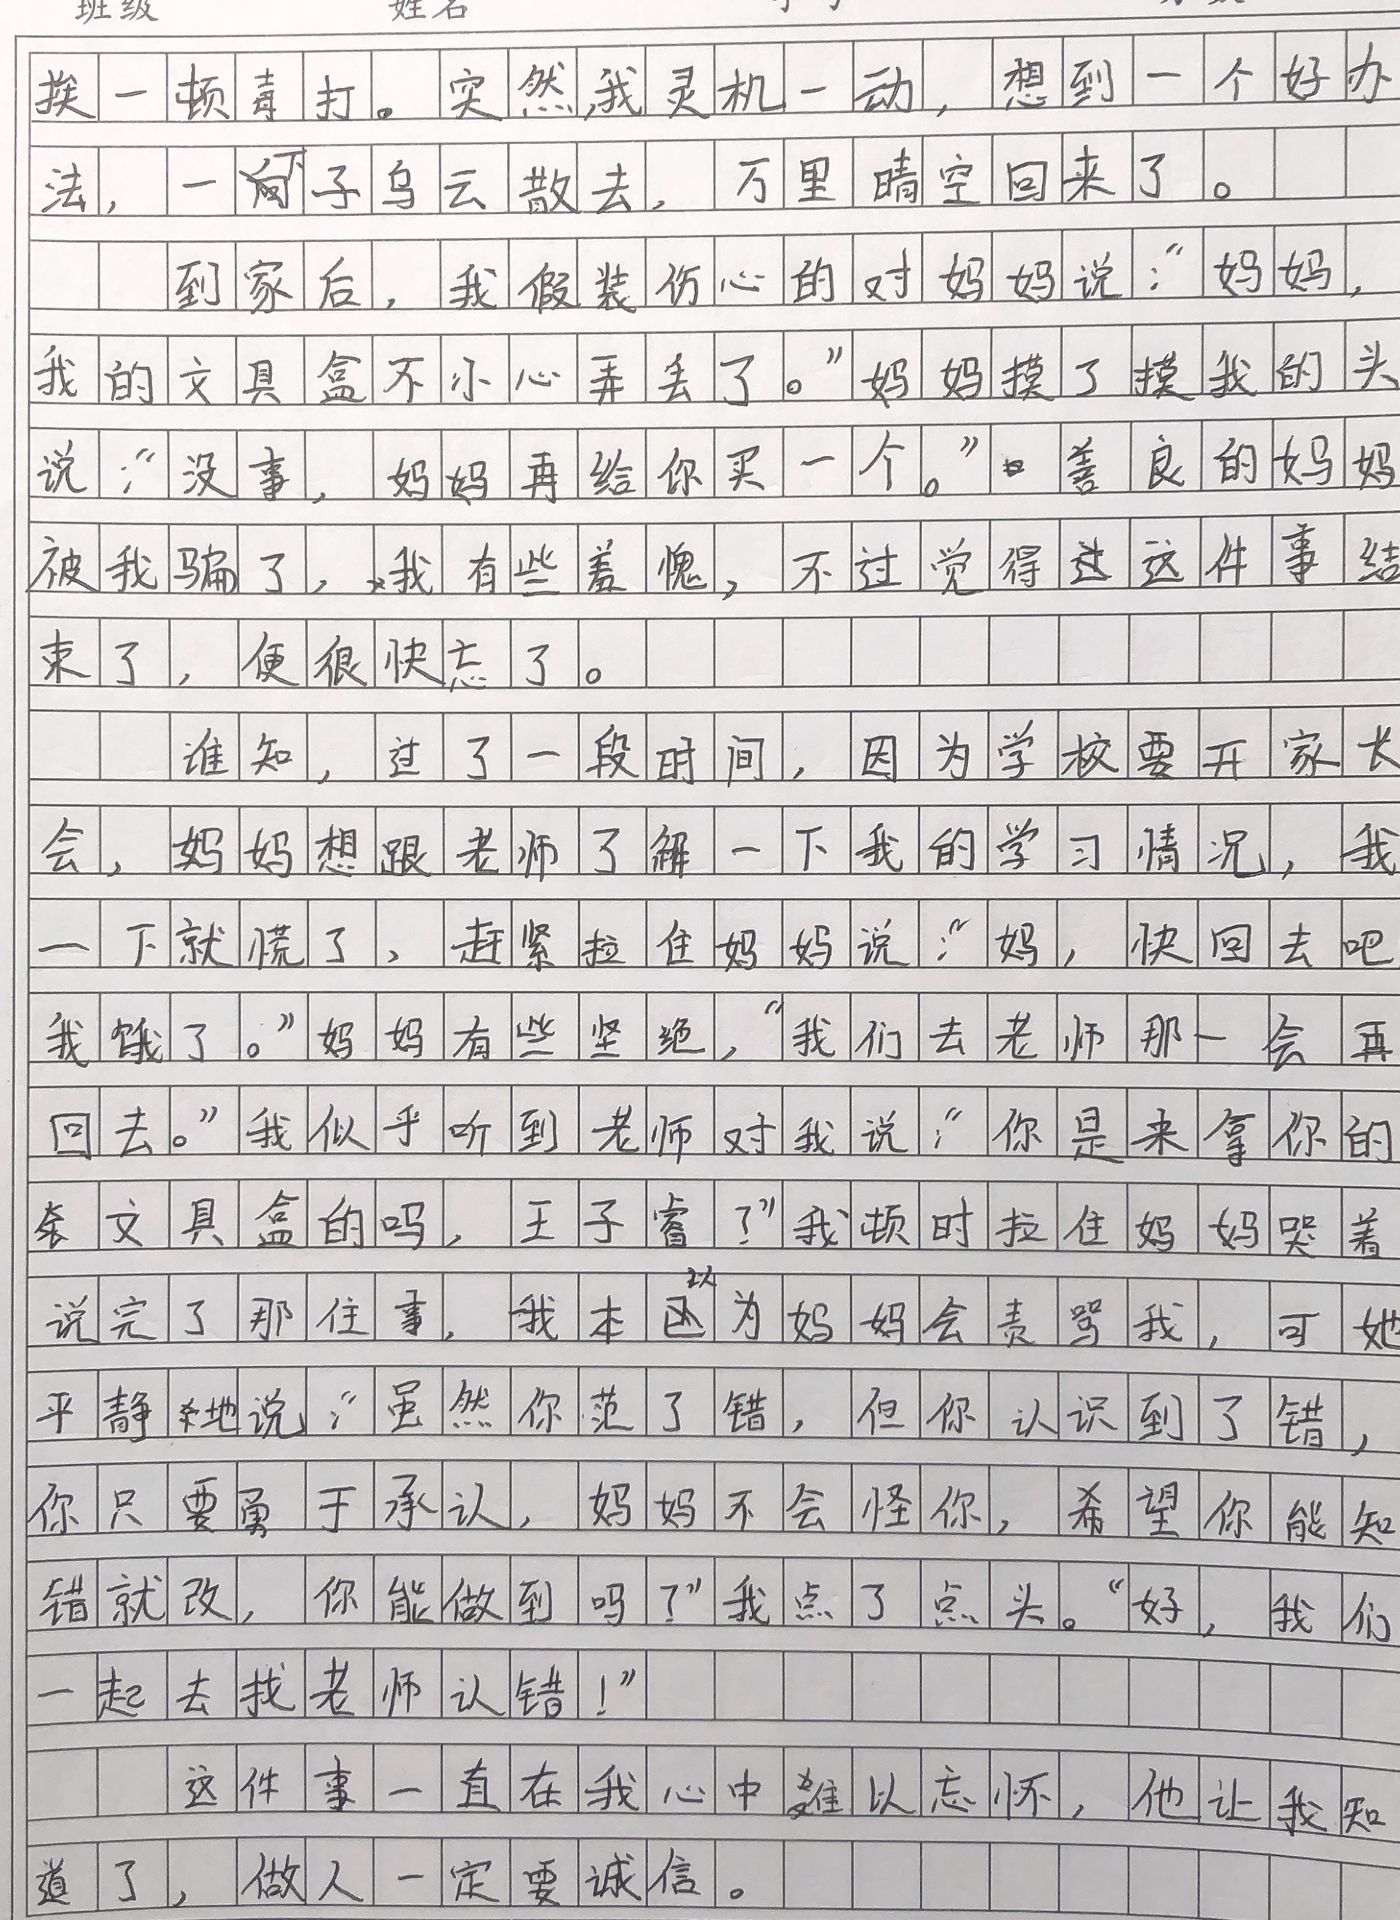 班级 姓名
挨一顿毒打。突然,我灵机一动,想到一个好办
法,一下子乌云散去,万里晴空回来了。
到家后,我假装伤心的对妈妈说:“妈妈,
我的文具盒不小心弄丢了。”妈妈摸了摸我的头
说:“没事,妈妈再给你买一个。”善良的妈妈
被我骗了,我有些羞愧,不过觉得这这件事结
束了,便很快忘了。
谁知,过了一段时间,因为学校要开家长
会,妈妈想跟老师了解一下我的学习情况,我
一下就慌了,赶紧拉住妈妈说:“妈,快回去吧
我饿了。”妈妈有些坚绝,“我们去老师那一会再
回去。”我似乎听到老师对我说:“你是来拿你的
文具盒的吗,王子睿?”我顿时拉住妈妈哭着
说完了那住事,我本以为妈妈会责骂我,可她
平静地说:“虽然你范了错,但你认识到了错,
你只要勇于承认,妈妈不会怪你,希望你能知
错就改,你能做到吗?”我点了点头。“好,我们
一起去找老师认错!”
这件事一直在我心中难以忘怀,他让我知
道了,做人一定要诚信。